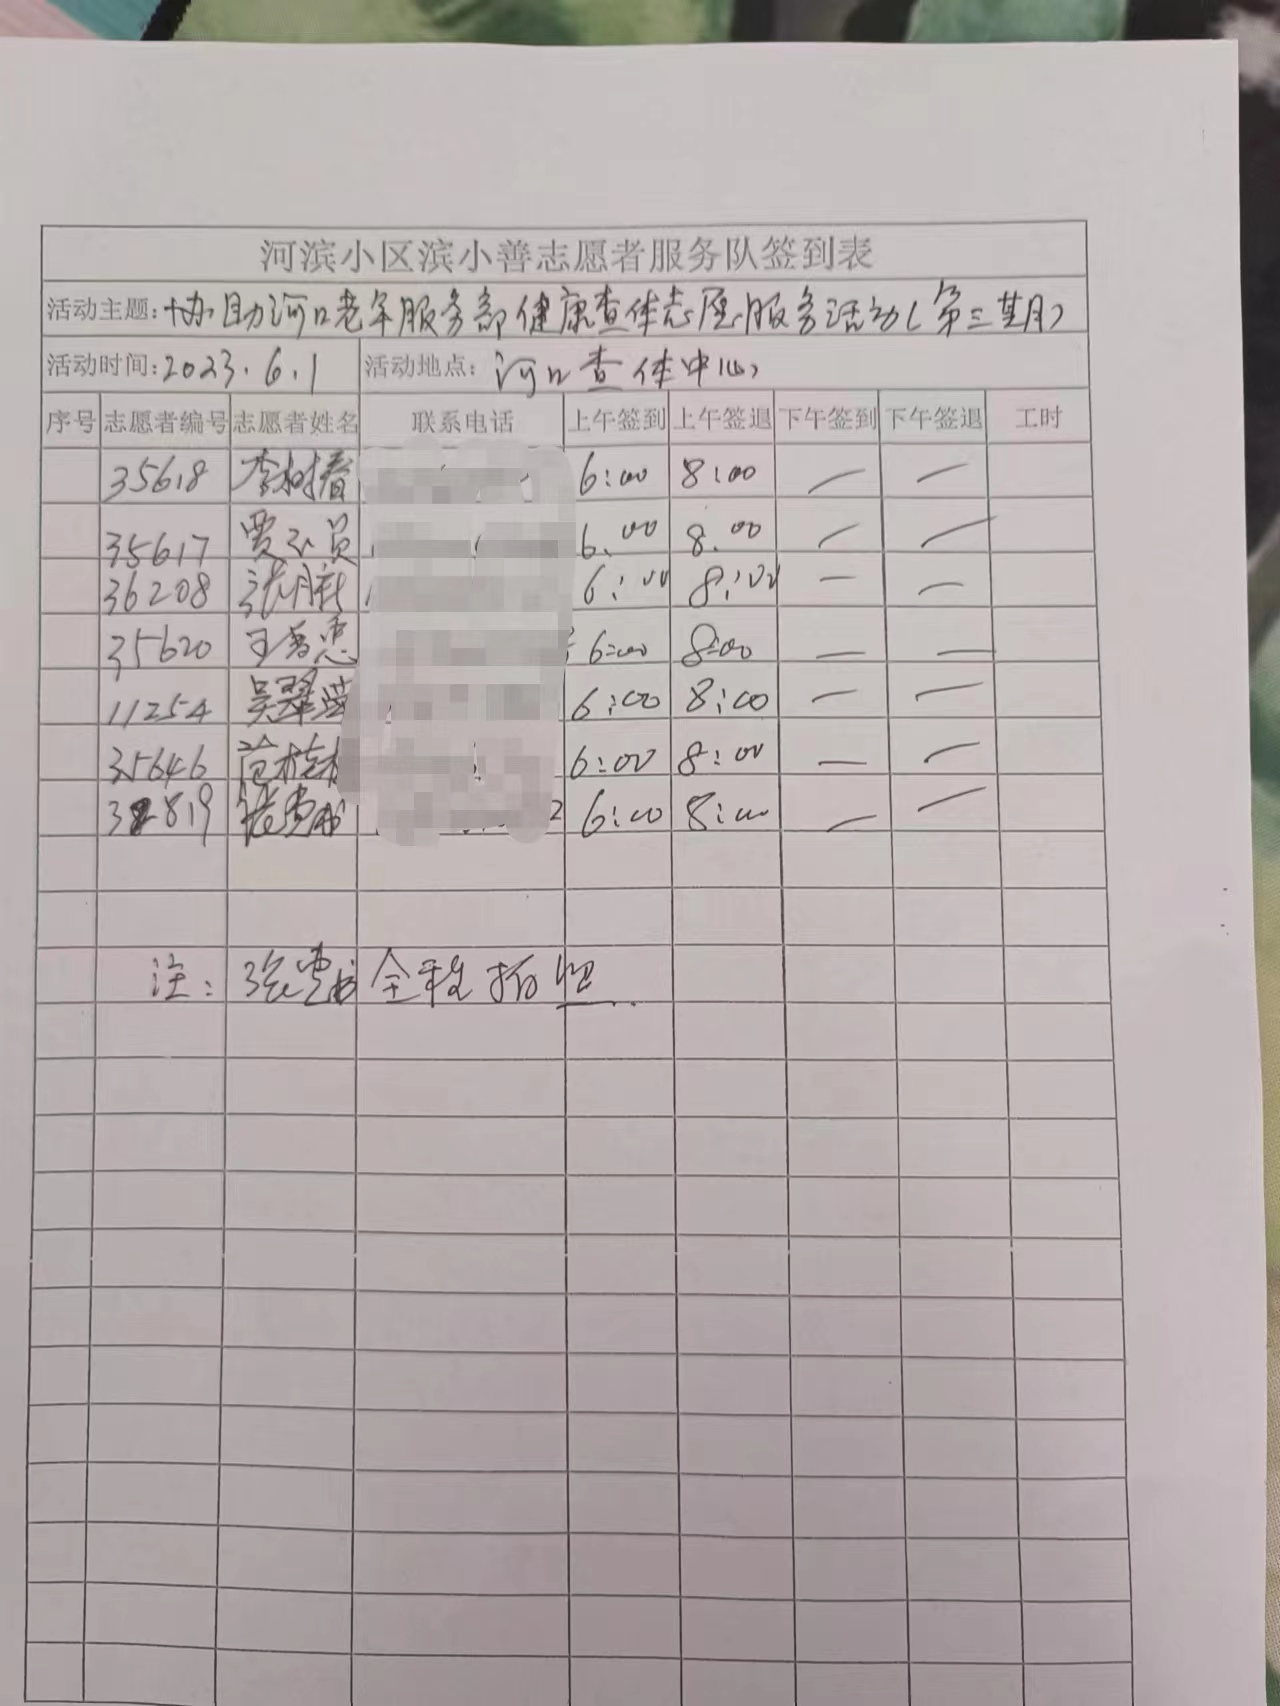 河滨小区滨小善志愿者服务队签到表
活动主题:协助河口老年服务部健康查体志愿服务活动(第三期)
活动时间:2023.6.1 活动地点: 河口查体中心
序号 志愿者编号 志愿者姓名 联系电话 上午签到 上午签退 下午签到 下午签退 工时
35618 李树春 6:00 8:00 — —
35617 贾 员 6.00 8.00 — —
36208 张 6:00 8:00 — —
35620 王 6:00 8:00 — —
11254 吴翠莲 6:00 8:00 — —
35646 范桂 6:00 8:00 — —
819 2 6:00 8:00 — —
注: 张 全程拍照